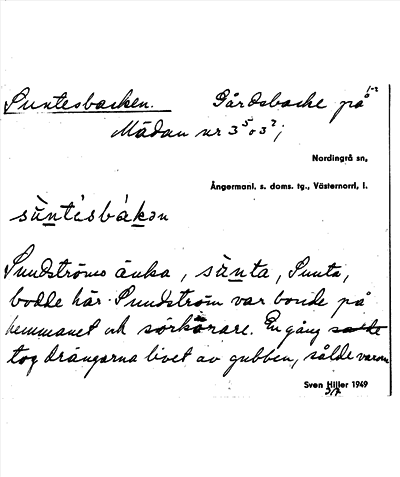 Suntesbacken. Gårdsbacke på 1-2
Mädan nr 3⁵ o 3²;
Nordingrå sn,
Ångermanl. s. doms. tg., Västernorrl. l.
sùntésbákən
Sundströms änka, sùnta, Sunta,
bodde här. Sundström var bonde på
hemmanet och sörkörare. En gång
tog drängarna livet av gubben, sålde varorn
Sven Hiller 1949